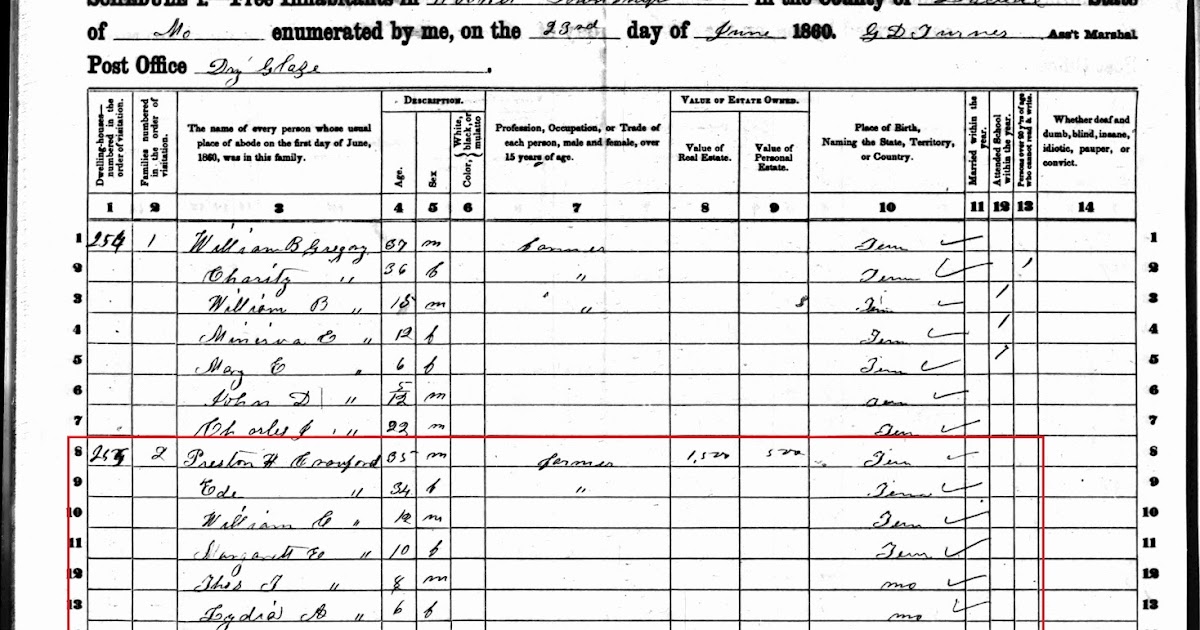 SCHEDULE 1.—Free Inhabitants in Township in the County of State
of Mo enumerated by me, on the 23rd day of June 1860. G D Turner Ass't Marshal
Post Office Dry Glaze.
Dwelling-houses—numbered in the order of visitation.
Families numbered in the order of visitation.
The name of every person whose usual place of abode on the first day of June, 1860, was in this family.
DESCRIPTION.
Age.
Sex
Color, { White, black, or mulatto
Profession, Occupation, or Trade of each person, male and female, over 15 years of age.
VALUE OF ESTATE OWNED.
Value of Real Estate.
Value of Personal Estate.
Place of Birth, Naming the State, Territory, or Country.
Married within the year.
Attended School within the year.
Persons over 20 y'rs of age who cannot read & write.
Whether deaf and dumb, blind, insane, idiotic, pauper, or convict.
1 2 3 4 5 6 7 8 9 10 11 12 13 14
1 254 1 William B Gregory 37 m farmer Tenn 1
2 Charity " 36 f " Tenn / 2
3 William B " 15 m " Tenn / 3
4 Minerva E " 12 f Tenn / 4
5 Mary E " 6 f Tenn / 5
6 John D " 5/12 m 6
7 Charles J " 22 m Tenn 7
8 255 2 Preston H Crawford 35 m farmer 1,500 500 Tenn 8
9 Ede " 34 f " Tenn 9
10 William C " 12 m Tenn 10
11 Margarett E " 10 f Tenn 11
12 Thos J " 8 m mo 12
13 Lydia A " 6 f mo 13